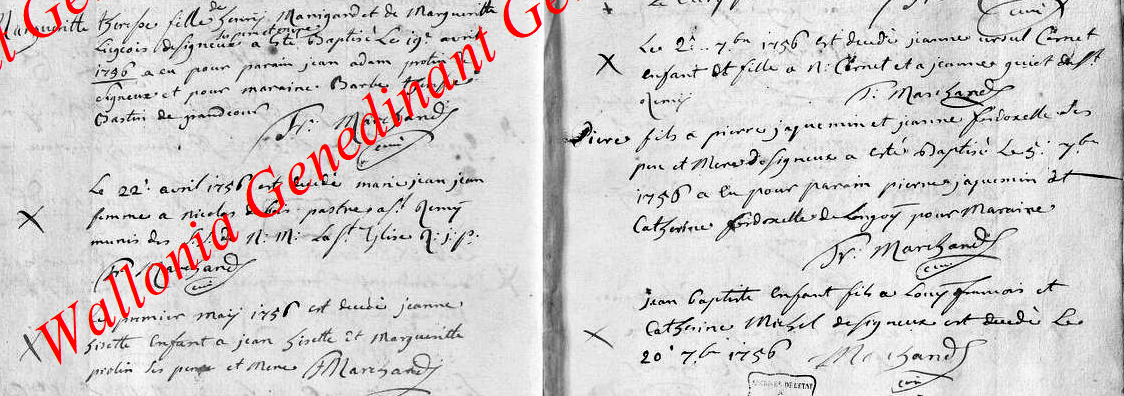 Margueritte therese fille de henry Manigard et de Margueritte
Liegois de signeux a esté Baptisé Le 19e avril
1756 a eu pour parain jean adam protin de
signeux et pour maraine Barbe
Bastin de grandcour
Fr. Marchand
curé
Le 22e avril 1756 est decedé marie jean jean
femme a nicolas de bois pastre a st Remy
munis des de N: M: La ste Eglise R: j: p:
Fr. Marchand
curé
Le premier Maij 1756 est decedé jeanne
hisette Enfant a jean hisette Et Margueritte
protin ses pere et Mere Marchand
curé
Le 2e 7bre 1756 est decedé jeanne ursul Cornet
enfant Et fille a N: Cornet et a jeanne de st
Remij
Fr. Marchand
Piere fils a pierre jaquemin et jeanne fridorelle ses
pere et Mere de signeux a esté Baptisé Le 5e 7bre
1756 a Eu pour parain pierre jaquemin Et
Catherine fridorelle de Longoy pour Maraine
Fr. Marchand
curé
jean baptiste enfant fils a Louy francois et
Catherine Michel de signeux est decedé Le
20e 7bre 1756 Marchand
curé
ARCHIVES DE L'ETAT
Wallonia Genedinant